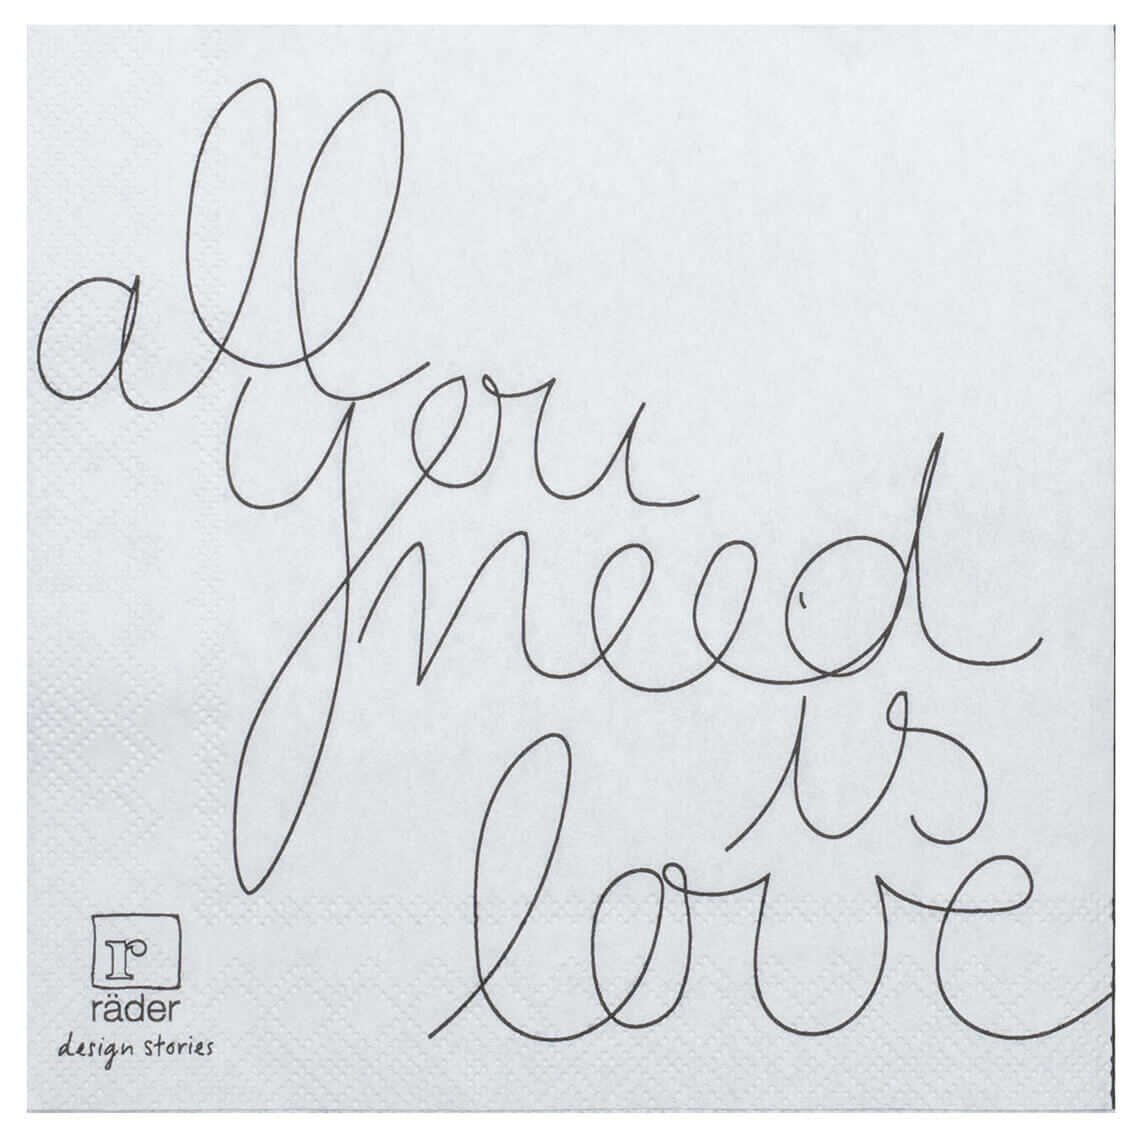 all
you
need
is
love
r
räder
design stories